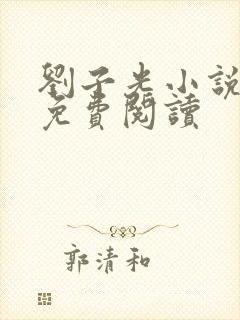 劉子光小說
免費閱讀
郭清和